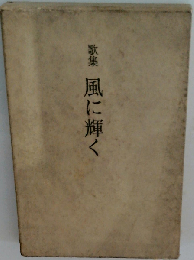 歌集
風に輝く